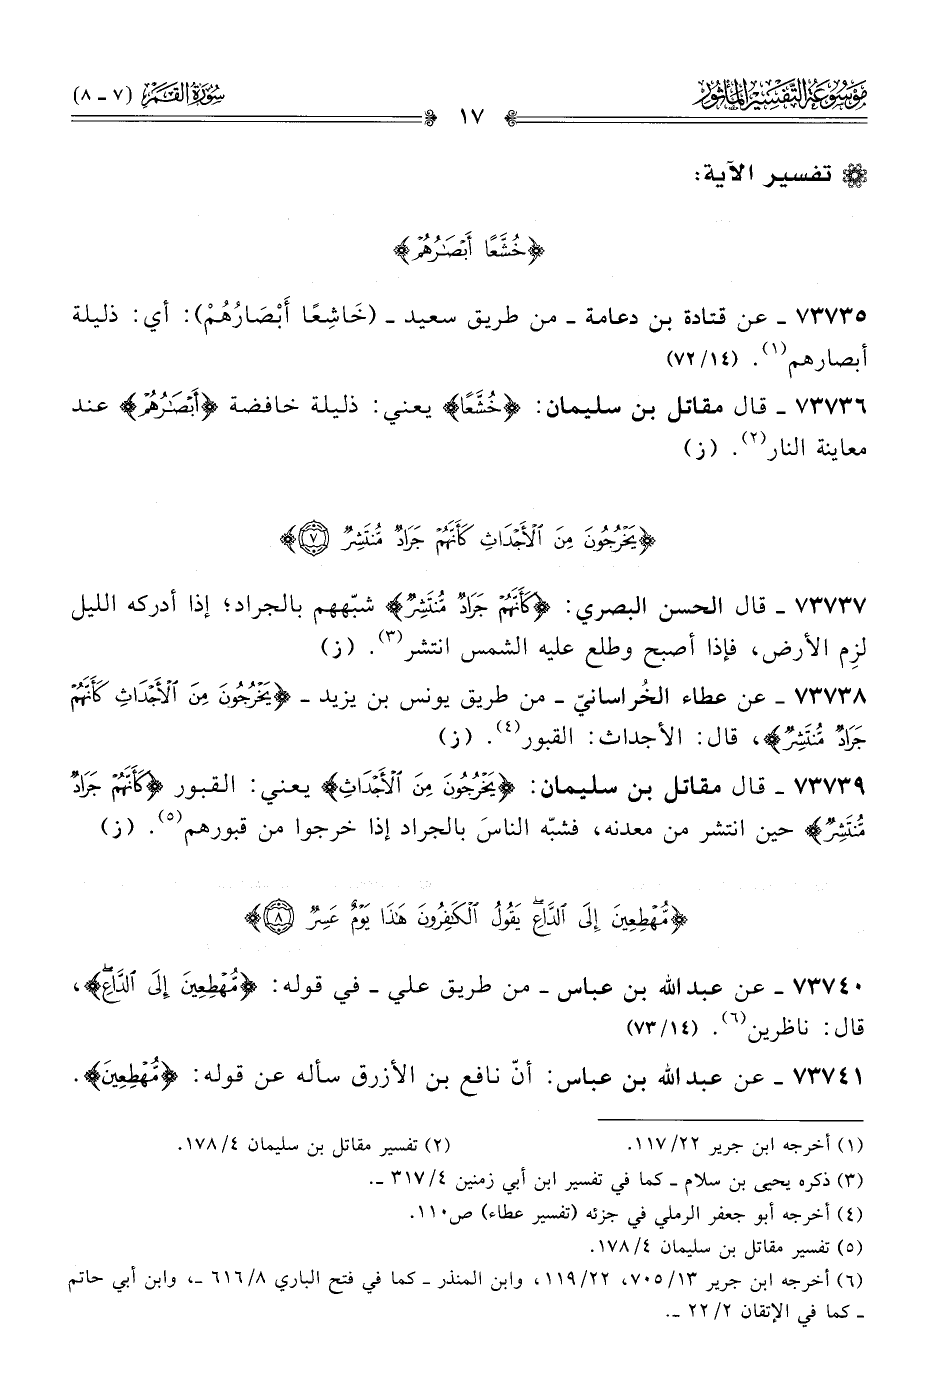 موسوعة التفسير المأثور
١٧
سورة القمر (٧ - ٨)
تفسير الآية:
﴿خُشَّعًا أَبْصَٰرُهُمْ﴾
٧٣٧٣٥ - عن قتادة بن دعامة - من طريق سعيد - (خَاشِعًا أَبْصَارُهُمْ): أي: ذليلة
أبصارهم(١). (٧٢/١٤)
٧٣٧٣٦ - قال مقاتل بن سليمان: ﴿خُشَّعًا﴾ يعني: ذليلة خافضة ﴿أَبْصَٰرُهُمْ﴾ عند
معاينة النار(٢). (ز)
﴿يَخْرُجُونَ مِنَ ٱلْأَجْدَاثِ كَأَنَّهُمْ جَرَادٌ مُّنتَشِرٌ ٧﴾
٧٣٧٣٧ - قال الحسن البصري: ﴿كَأَنَّهُمْ جَرَادٌ مُّنتَشِرٌ﴾ شبّههم بالجراد؛ إذا أدركه الليل
لزِم الأرض، فإذا أصبح وطلع عليه الشمس انتشر(٣). (ز)
٧٣٧٣٨ - عن عطاء الخُراسانيّ - من طريق يونس بن يزيد - ﴿يَخْرُجُونَ مِنَ ٱلْأَجْدَاثِ كَأَنَّهُمْ
جَرَادٌ مُّنتَشِرٌ﴾، قال: الأجداث: القبور(٤). (ز)
٧٣٧٣٩ - قال مقاتل بن سليمان: ﴿يَخْرُجُونَ مِنَ ٱلْأَجْدَاثِ﴾ يعني: القبور ﴿كَأَنَّهُمْ جَرَادٌ
مُّنتَشِرٌ﴾ حين انتشر من معدنه، فشبّه الناسَ بالجراد إذا خرجوا من قبورهم(٥). (ز)
﴿مُّهْطِعِينَ إِلَى ٱلدَّاعِ ۖ يَقُولُ ٱلْكَٰفِرُونَ هَٰذَا يَوْمٌ عَسِرٌ ٨﴾
٧٣٧٤٠ - عن عبد الله بن عباس - من طريق علي - في قوله: ﴿مُّهْطِعِينَ إِلَى ٱلدَّاعِ ۖ﴾،
قال: ناظرين(٦). (٧٣/١٤)
٧٣٧٤١ - عن عبد الله بن عباس: أنّ نافع بن الأزرق سأله عن قوله: ﴿مُّهْطِعِينَ﴾.
(١) أخرجه ابن جرير ١١٧/٢٢. (٢) تفسير مقاتل بن سليمان ١٧٨/٤.
(٣) ذكره يحيى بن سلام - كما في تفسير ابن أبي زمنين ٣١٧/٤ -.
(٤) أخرجه أبو جعفر الرملي في جزئه (تفسير عطاء) ص١١٠.
(٥) تفسير مقاتل بن سليمان ١٧٨/٤.
(٦) أخرجه ابن جرير ٧٠٥/١٣، ١١٩/٢٢، وابن المنذر - كما في فتح الباري ٦١٦/٨ -، وابن أبي حاتم
- كما في الإتقان ٢٢/٢ -.